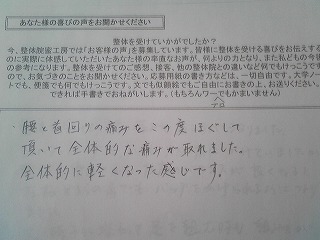 あなた様の喜びの声をお聞かせください
整体を受けていかがでしたか？
今、整体院蜜工房では「お客様の声」を募集しています。皆様に整体を受ける喜びをお伝えする
のに実際に体感していただいたあなた様の率直なお声が、何よりの力となり、また私どもの今後
の参考になります。整体を受けてのご感想、接客、他の整体院との違いなど何でもけっこうです
ので、お気づきのことをお聞かせください。応募用紙の書き方などは、一切自由です。大学ノー
トでも、便箋でも何でもけっこうです。文でも似顔絵でもご自由にお書きの上、お送りください。
できれば手書きでおねがいします。（もちろんワープロでもかまいません）
腰と首回りの痛みをこの度ほぐして
頂いて全体的な痛みが取れました。
全体的に軽くなった感じです。